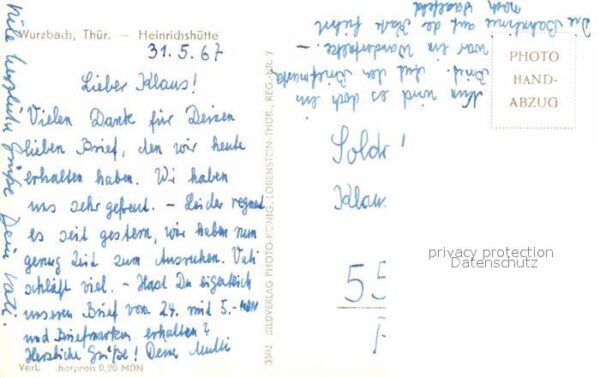 Wurzbach, Thür. — Heinrichshütte
31.5.67
Lieber Klaus!
Vielen Dank für Deinen
lieben Brief, den wir heute
erhalten haben. Wir haben
uns sehr gefreut. – Leider regnet
es seit gestern, wir haben nun
genug Zeit zum Ausruhen. Vati
schläft viel. – Hast Du eigentlich
unseren Brief vom 24. mit 5.– MDN
und Briefmarken erhalten?
Herzliche Grüße! Deine Mutti
Verb herpreis 0,20 MDN
Viele herzliche Grüße Dein Vati.
3502 BILDVERLAG PHOTO-KÖNIG, LOBENSTEIN THÜR. REG.-NR. 7
Nun wird es doch ein
Brief. Auf den Briefmarken
war ein Wanderfalke. –
Die Bahnlinie auf der Karte führt
nach Saalfeld
PHOTO
HAND-
ABZUG
Sold
Klau
privacy protection
Datenschutz
55